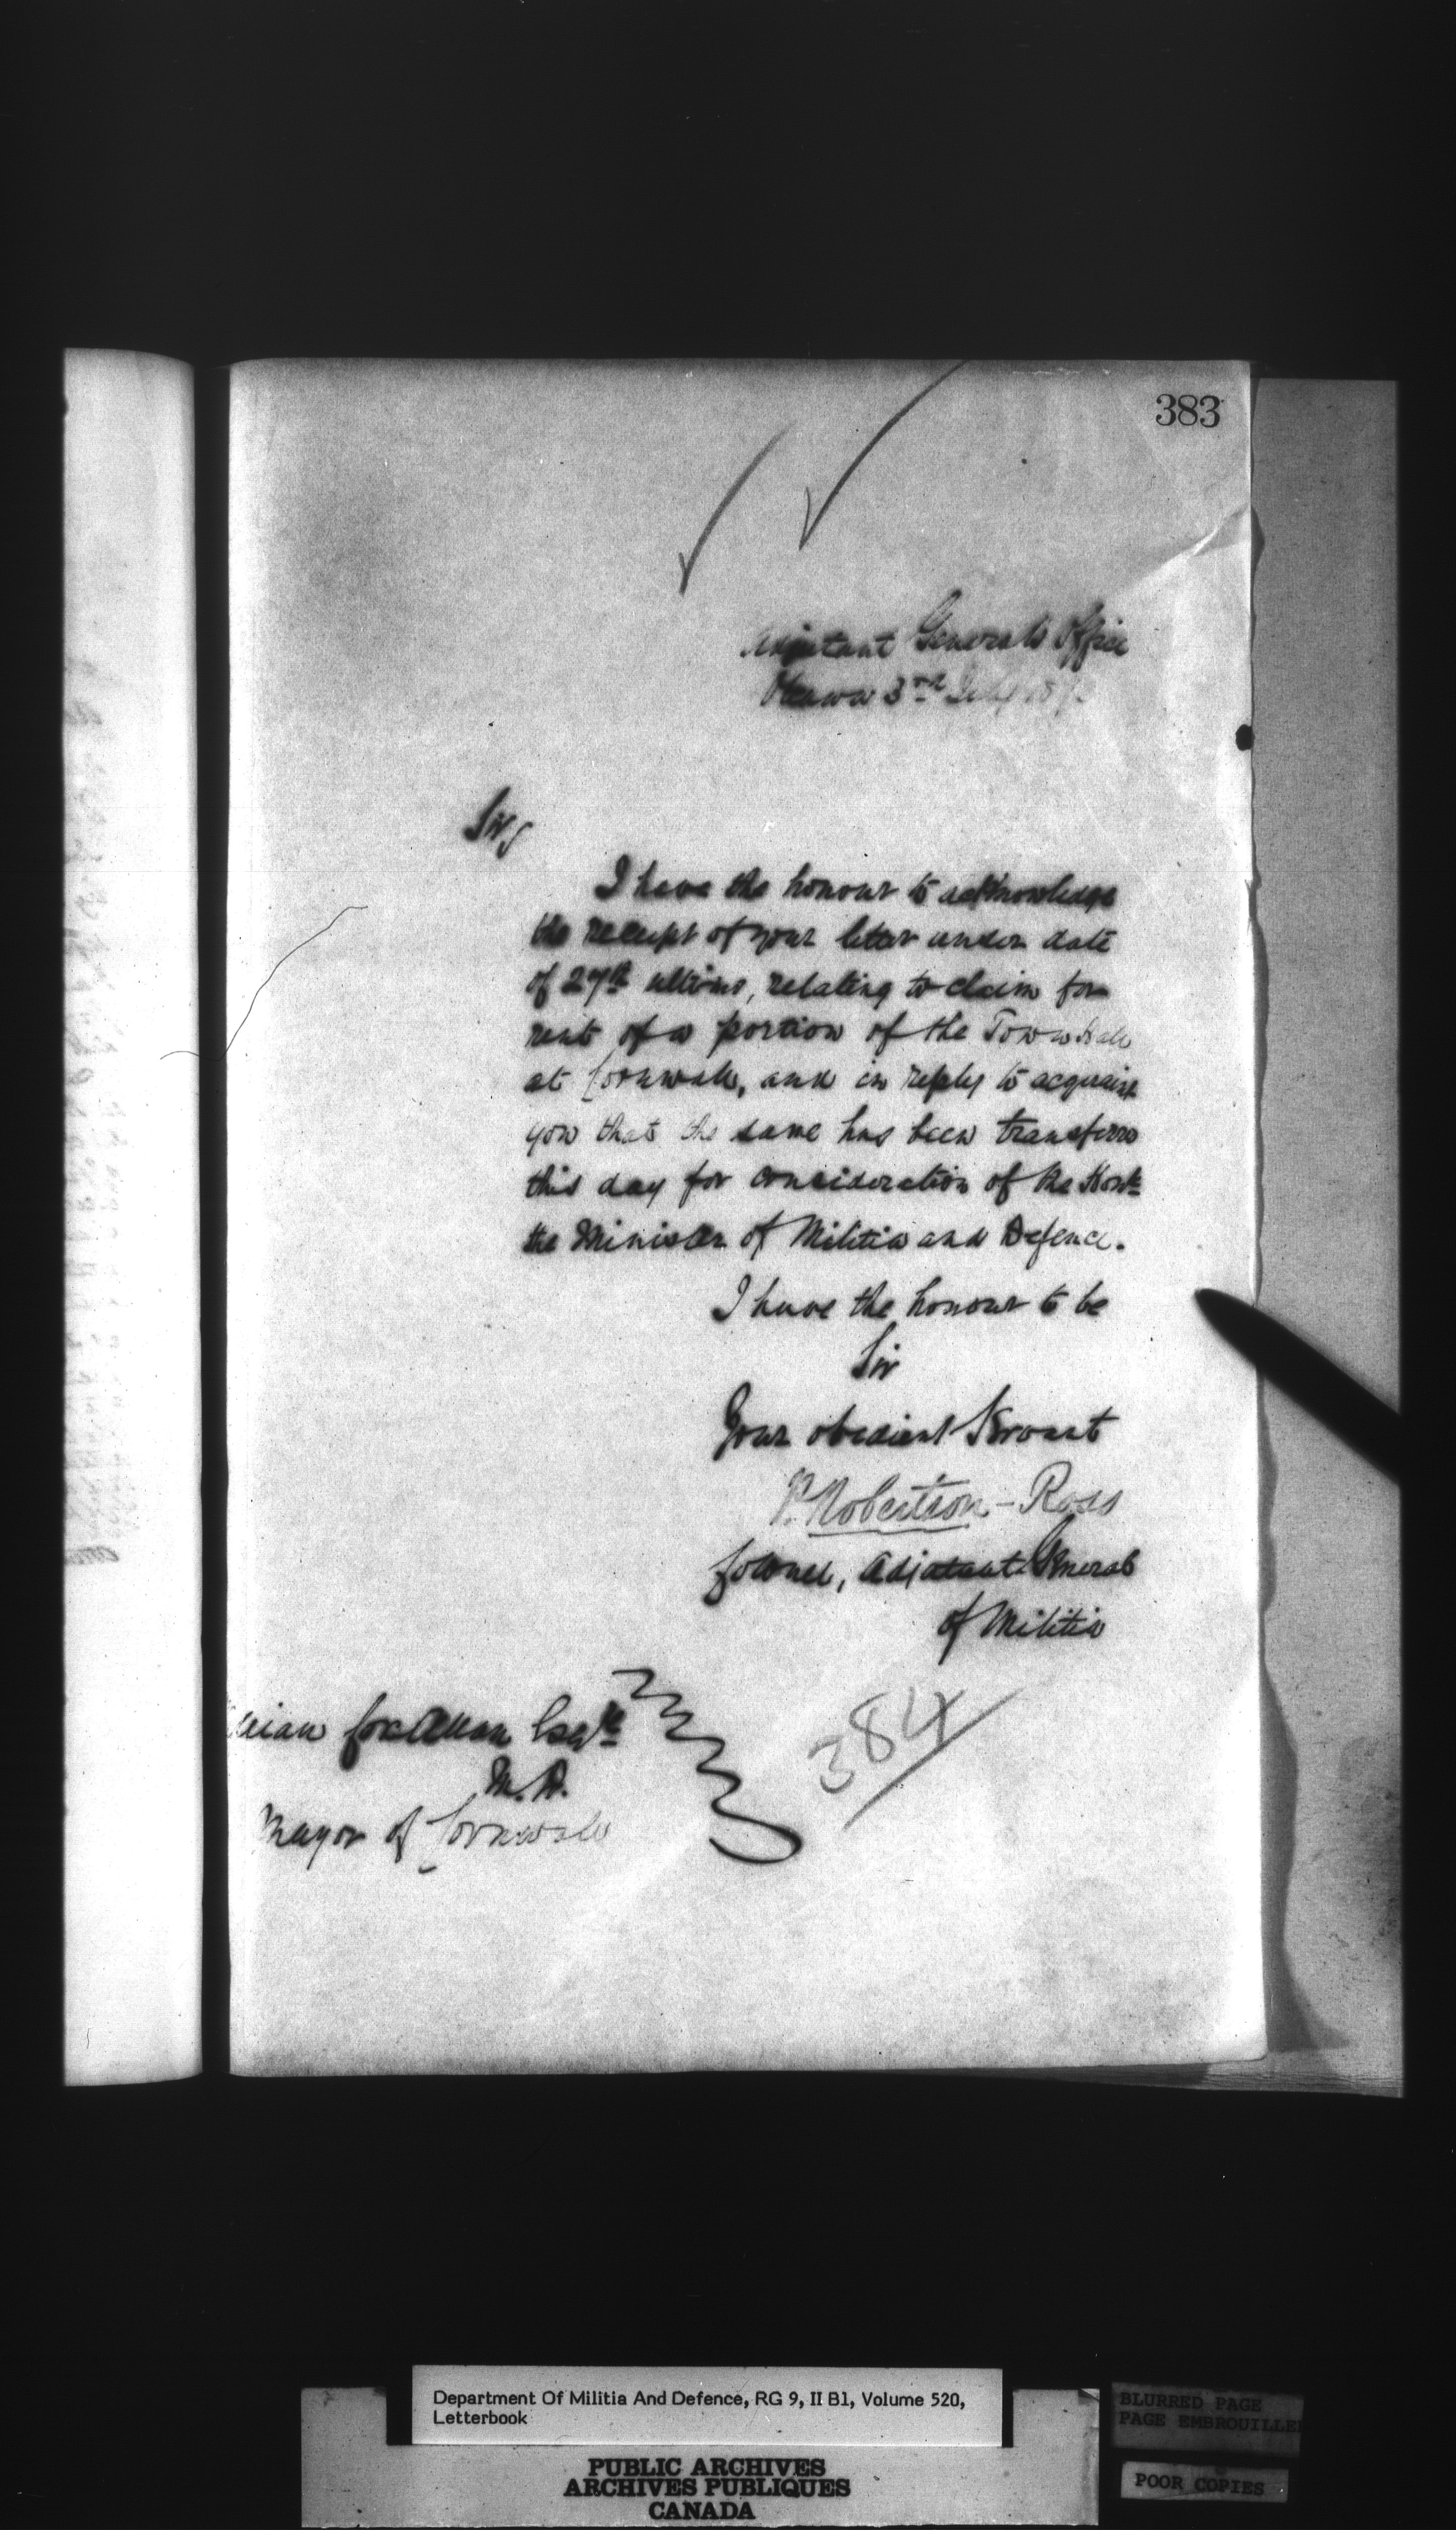 383
Adjutant Generals Office
Ottawa 3rd July 18
Sir,
I have the honour to acknowledge
the receipt of your letter under date
of 27th ultimo, relating to claim for
rent of a portion of the Town Hall
at Cornwall, and in reply to acquaint
you that the same has been transferre
this day for consideration of the Honble
the Minister of Militia and Defence.
I have the honour to be
Sir
Your obedient Servant
P. Robertson-Ross
Colonel, Adjutant General
of Militia
Esqre
M.D.
Mayor of Cornwall
384
Department Of Militia And Defence, RG 9, II B1, Volume 520,
Letterbook
PUBLIC ARCHIVES
ARCHIVES PUBLIQUES
CANADA
BLURRED PAGE
PAGE EMBROUILLE
POOR COPIES